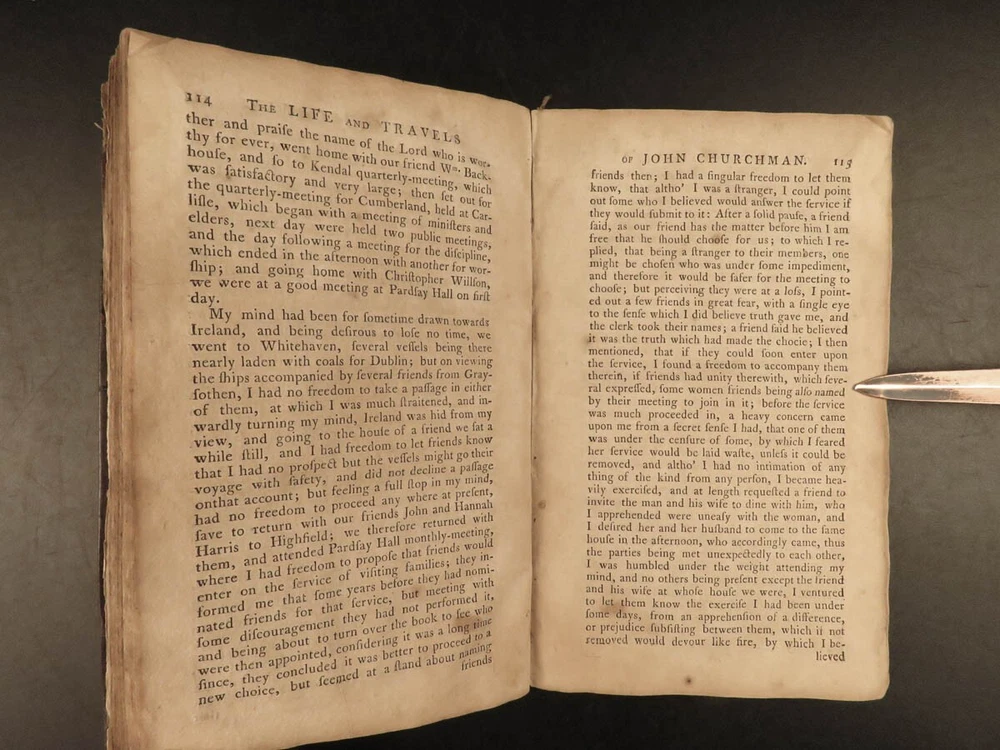 114 THE LIFE AND TRAVELS
ther and praiſe the name of the Lord who is wor-
thy for ever, went home with our friend Wm. Back-
houſe, and ſo to Kendal quarterly-meeting, which
was ſatisfactory and very large; then ſet out for
the quarterly-meeting for Cumberland, held at Car-
liſle, which began with a meeting of miniſters and
elders, next day were held two public meetings,
and the day following a meeting for the diſcipline,
which ended in the afternoon with another for wor-
ſhip; and going home with Chriſtopher Willſon,
we were at a good meeting at Pardſay Hall on firſt
day.
My mind had been for ſometime drawn towards
Ireland, and being deſirous to loſe no time, we
went to Whitehaven, ſeveral veſſels being there
nearly laden with coals for Dublin; but on viewing
the ſhips accompanied by ſeveral friends from Gray-
ſothen, I had no freedom to take a paſſage in either
of them, at which I was much ſtraitened, and in-
wardly turning my mind, Ireland was hid from my
view, and going to the houſe of a friend we ſat a
while ſtill, and I had freedom to let friends know
that I had no proſpect but the veſſels might go their
voyage with ſafety, and did not decline a paſſage
onthat account; but feeling a full ſtop in my mind,
had no freedom to proceed any where at preſent,
ſave to return with our friends John and Hannah
Harris to Highfield; we therefore returned with
them, and attended Pardſay Hall monthly-meeting,
where I had freedom to propoſe that friends would
enter on the ſervice of viſiting families; they in-
formed me that ſome years before they had nomi-
nated friends for that ſervice, but meeting with
ſome diſcouragement they had not performed it,
and being about to turn over the book to ſee who
were then appointed, conſidering it was a long time
ſince, they concluded it was better to proceed to a
new choice, but ſeemed at a ſtand about naming
friends
OF JOHN CHURCHMAN. 115
friends then; I had a ſingular freedom to let them
know, that altho' I was a ſtranger, I could point
out ſome who I believed would anſwer the ſervice if
they would ſubmit to it: After a ſolid pauſe, a friend
ſaid, as our friend has the matter before him I am
free that he ſhould chooſe for us; to which I re-
plied, that being a ſtranger to their members, one
might be choſen who was under ſome impediment,
and therefore it would be ſafer for the meeting to
chooſe; but perceiving they were at a loſs, I point-
ed out a few friends in great fear, with a ſingle eye
to the ſenſe which I did believe truth gave me, and
the clerk took their names; a friend ſaid he believed
it was the truth which had made the chocie; I then
mentioned, that if they could ſoon enter upon
the ſervice, I found a freedom to accompany them
therein, if friends had unity therewith, which ſeve-
ral expreſſed, ſome women friends being alſo named
by their meeting to join in it; before the ſervice
was much proceeded in, a heavy concern came
upon me from a ſecret ſenſe I had, that one of them
was under the cenſure of ſome, by which I feared
her ſervice would be laid waſte, unleſs it could be
removed, and altho' I had no intimation of any
thing of the kind from any perſon, I became hea-
vily exerciſed, and at length requeſted a friend to
invite the man and his wife to dine with him, who
I apprehended were uneaſy with the woman, and
I deſired her and her huſband to come to the ſame
houſe in the afternoon, who accordingly came, thus
the parties being met unexpectedly to each other,
I was humbled under the weight attending my
mind, and no others being preſent except the friend
and his wife at whoſe houſe we were, I ventured
to let them know the exerciſe I had been under
ſome days, from an apprehenſion of a difference,
or prejudice ſubſiſting between them, which if not
removed would devour like fire, by which I be-
lieved